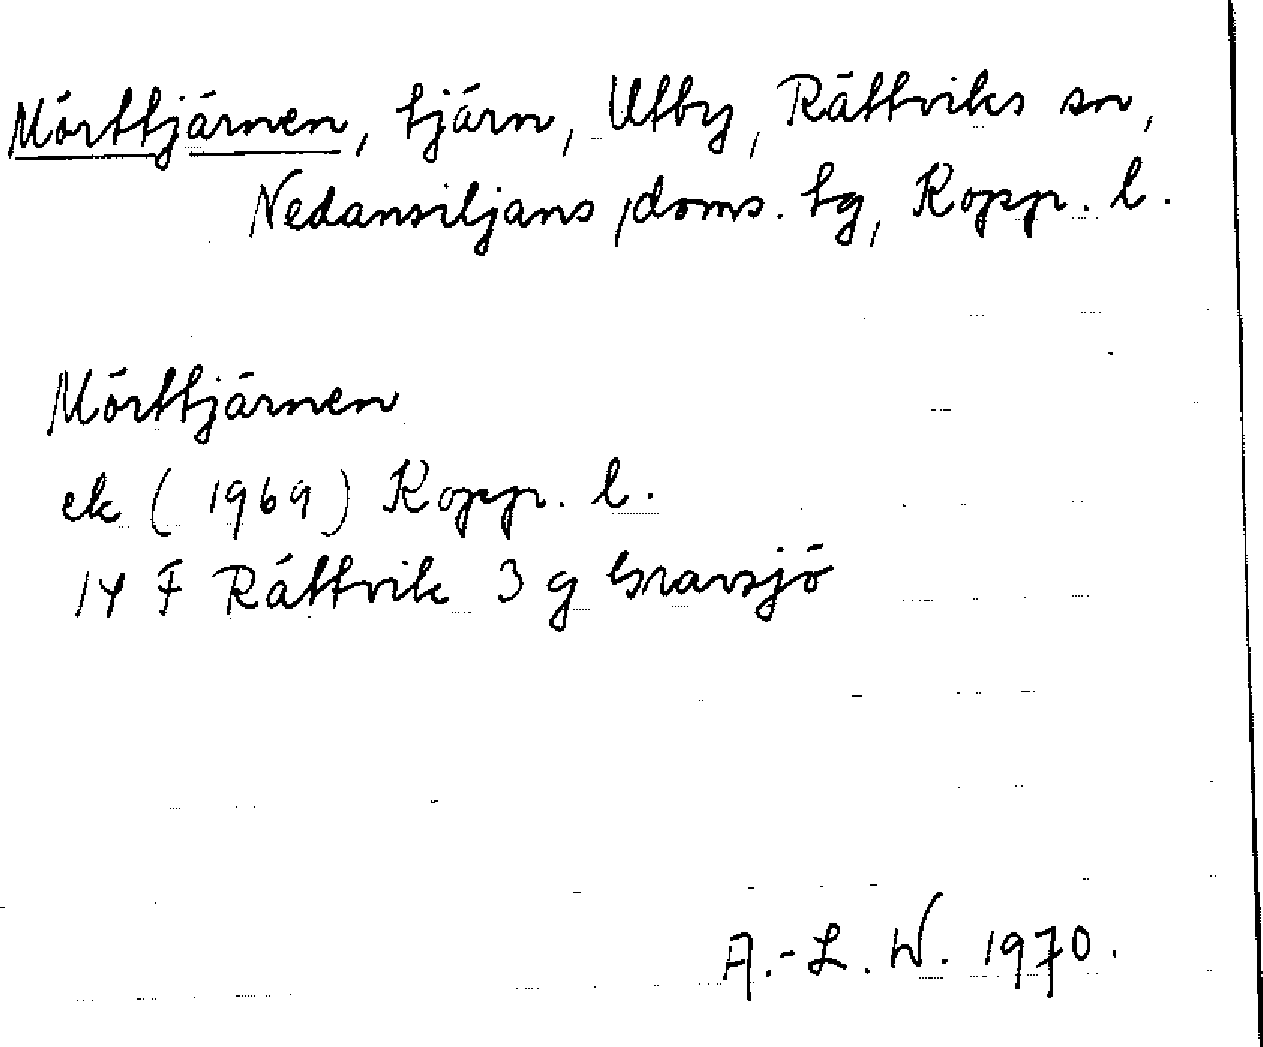 Mörttjärnen, tjärn, Utby, Rättviks sn,
Nedansiljans doms. tg, Kopp. l.
Mörttjärnen
ek (1969) Kopp. l.
14 F Rättvik 3 g Gravsjö
A.-L. W. 1970.